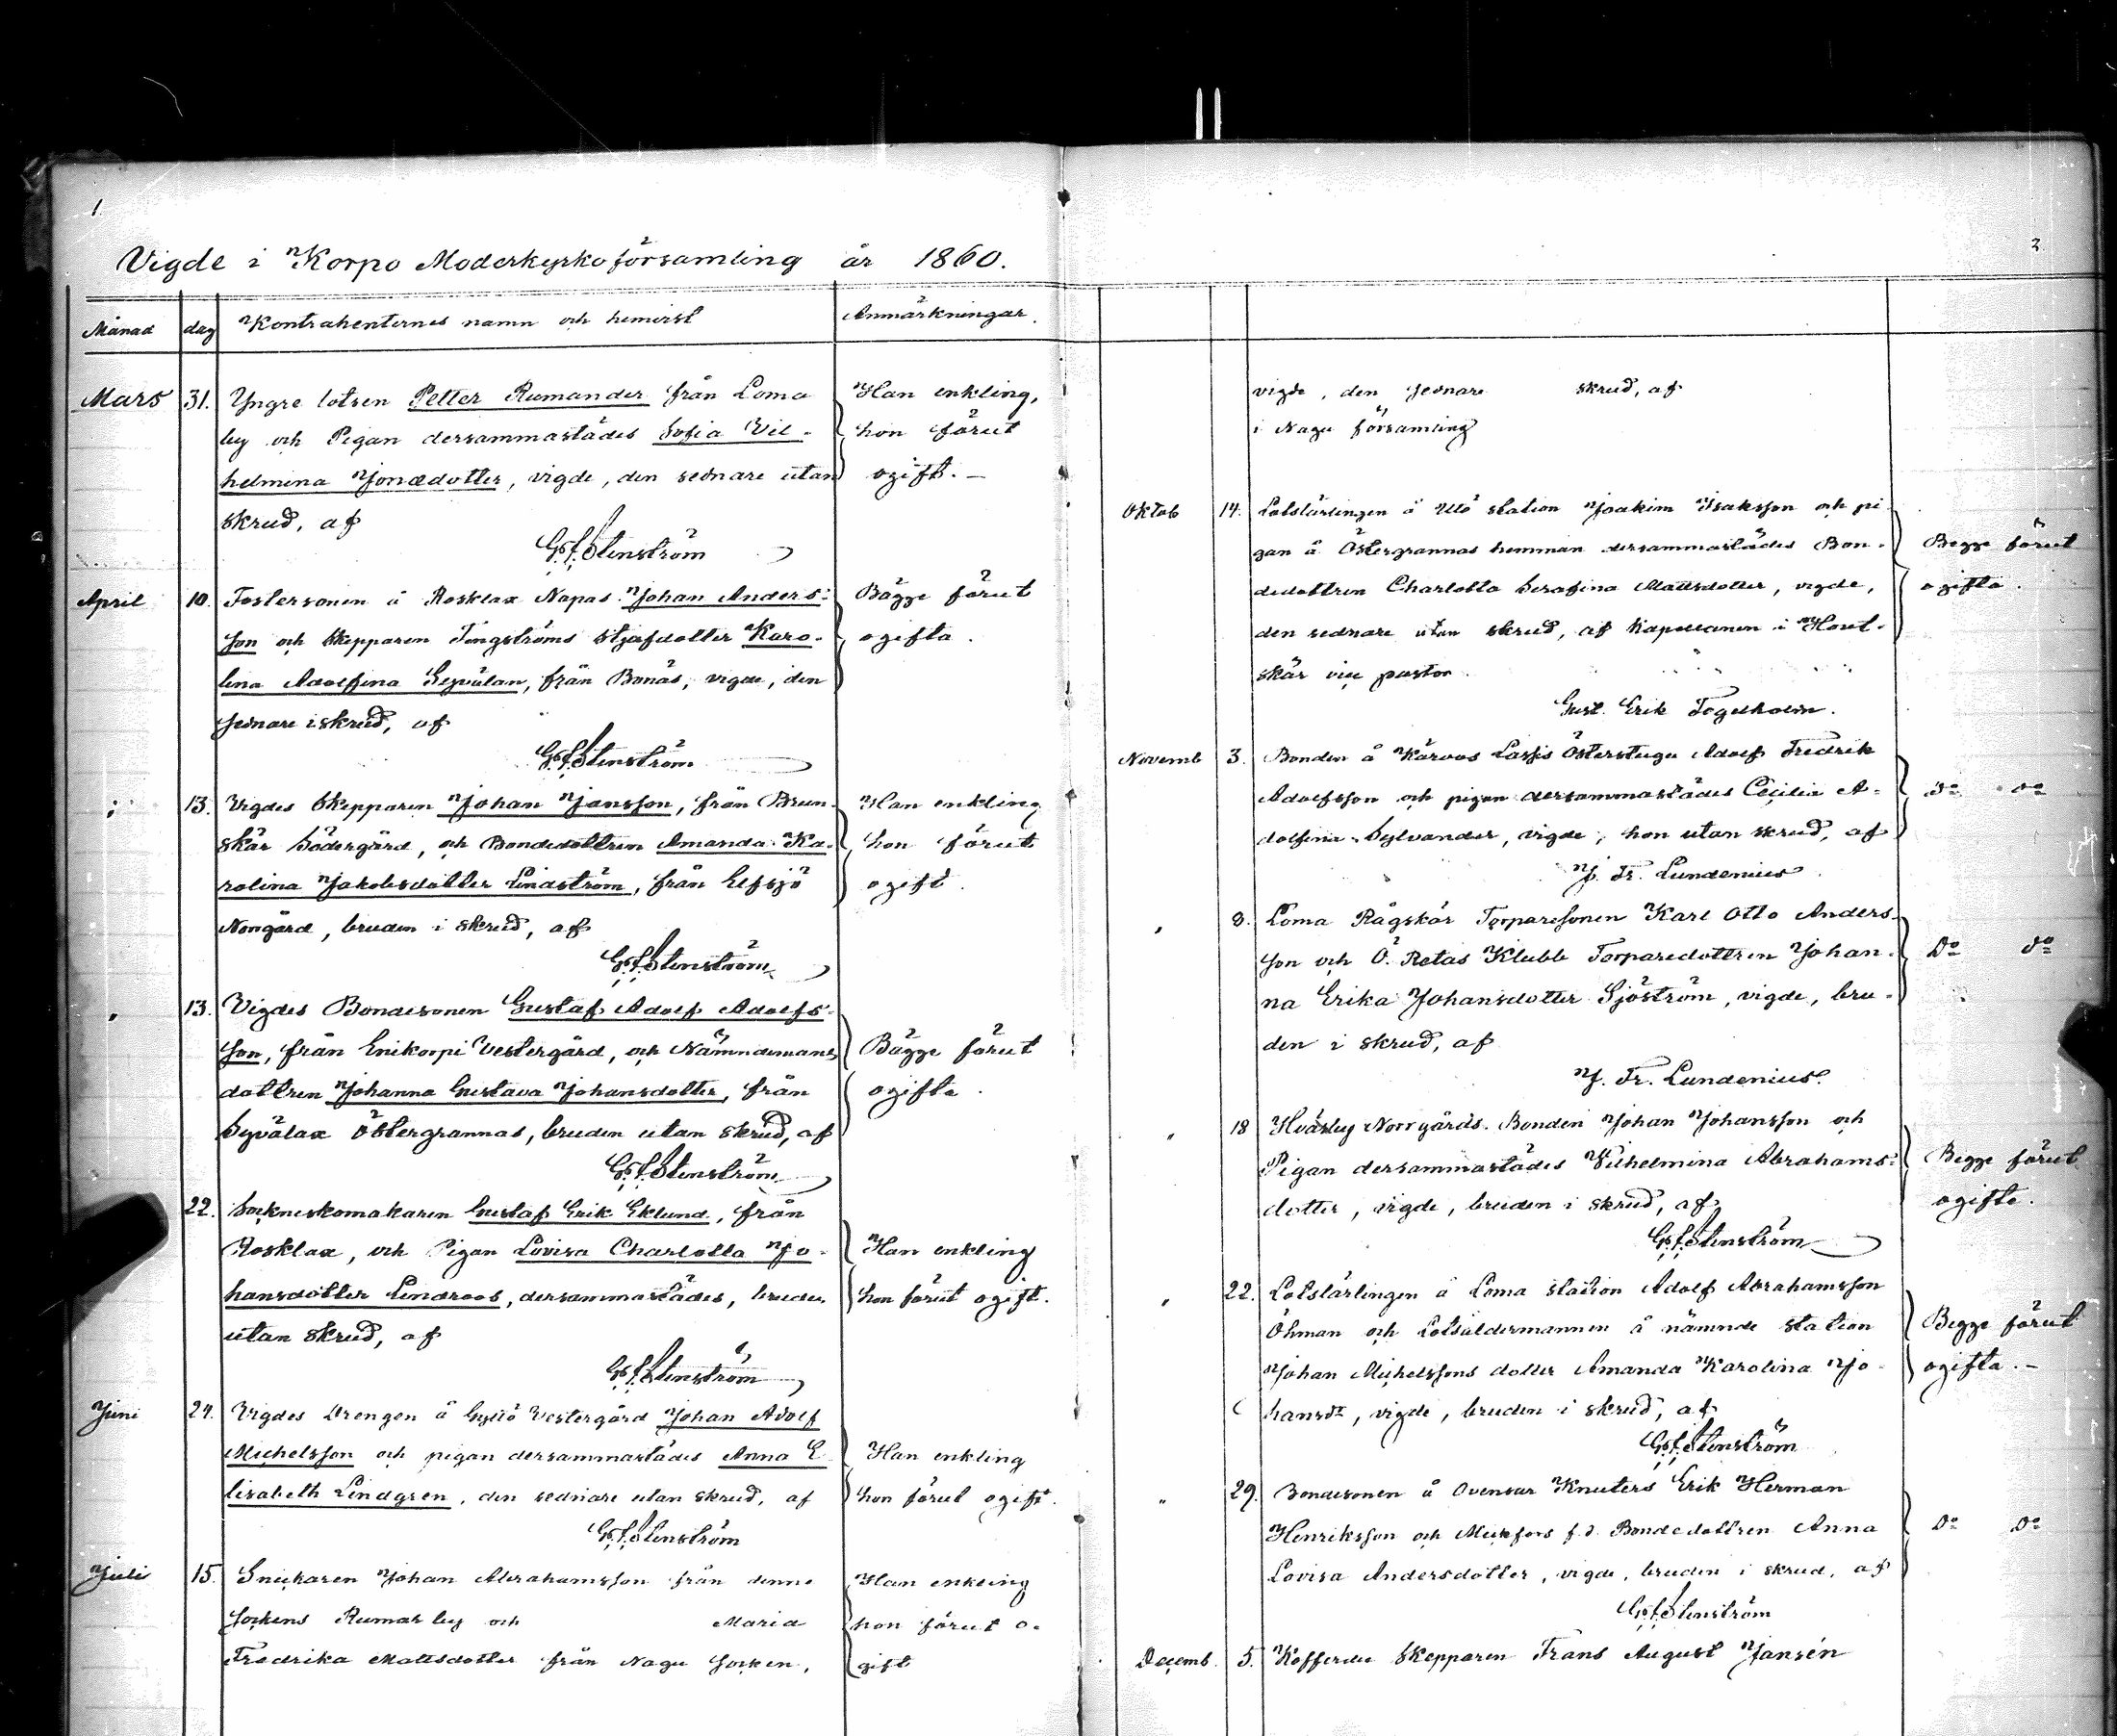 1.
Vigde i Korpo Moderkyrkoförsamling år 1860.
Månad dag Kontrahenternes namn och hemvist Anmärkningar.
Mars 31. Yngre lotsen Petter Rumander från Loma Han enkling,
by och Pigan dersammastädes Sofia Vil- hon förut
helmina Jonædotter, vigde, den sednare utan ogift.–
skrud, af
G. f. Stenström
April 10. Fostersonen å Rosklax Napas Johan Anders- Bägge förut
son och Skepparen Tengströms styfdotter Karo- ogifta.
lina Adolfina Segvälan, från Bonäs, vigde, den
sednare i skrud, af
G. f. Stenström
" 13. Vigdes Skepparen Johan Jansson, från Brun- Han enkling
skär Södergård, och Bondedottren Amanda Ka- hon förut
rolina Jakobsdotter Lindström, från Elfsjö ogift.
Norrgård, bruden i skrud, af
G. f. Stenström
" 13. Vigdes Bondesonen Gustaf Adolf Adolfs-
son, från Enikorpi Vestergård, och Nämndemans Bägge förut
dottren Johanna Gustava Johansdotter, från ogifta.
Syvälax Östergrannas, bruden utan skrud, af
G. f. Stenström
22. Sockneskomakaren Gustaf Erik Eklund, från
Rosklax, och Pigan Lovisa Charlotta Jo- Han enkling
hansdotter Lindroos, dersammastädes, bruden hon förut ogift.
utan skrud, af
G. f. Stenström
Juni 24. Vigdes Drengen å Gyltö Vestergård Johan Adolf
Michelsson och pigan dersammastädes Anna E- Han enkling
lisabeth Lindgren, den sednare utan skrud, af hon förut ogift.
G. f. Stenström
Juli 15. Snickaren Johan Abrahamsson från denne Han enkling
sockens Rumar by och Maria hon förut o-
Fredrika Mattsdotter från Nagu socken, gift
2
vigde, den sednare skrud, af
i Nagu församling
Oktob 14. Lotslärlingen å Utö station Joakim Isaksson och pi-
gan å Östergrannas hemman dersammastädes Bon- Begge förut
dedottren Charlotta Serafina Mattsdotter, vigde, ogifta.
den sednare utan skrud, af Kapellanen i Hout-
skär vice pastor
Gust. Erik Fogelholm.
Novemb 3. Bonden å Kärvas Lassis Österstugu Adolf Fredrik
Adolfsson och pigan dersammastädes Cecilia A- do do
dolfina Sylvander, vigde, hon utan skrud, af
J. Fr. Lundenius
" 8. Loma Rågskär Torparesonen Karl Otto Anders-
son och Ö. Retas Klubb Torparedottren Johan- Do do
na Erika Johansdotter Sjöström, vigde, bru-
den i skrud, af
J. Fr. Lundenius.
" 18 Hvärby Norrgårds Bonden Johan Johansson och
Pigan dersammastädes Vilhelmina Abrahams- Begge förut
dotter, vigde, bruden i skrud, af ogifta.
G. f. Stenström
" 22. Lotslärlingen å Loma station Adolf Abrahamsson
Öhman och Lotsåldermannen å nämnde station Begge förut
Johan Michelssons dotter Amanda Karolina Jo- ogifta.–
hansdr, vigde, bruden i skrud, af
G. f. Stenström
" 29. Bondesonen å Ovensar Knuters Erik Herman
Henriksson och f.d. Bondedottren Anna Do Do
Lovisa Andersdotter, vigde, bruden i skrud, af
G. f. Stenström
Decemb. 5. Kofferdie Skepparen Frans August Jansén